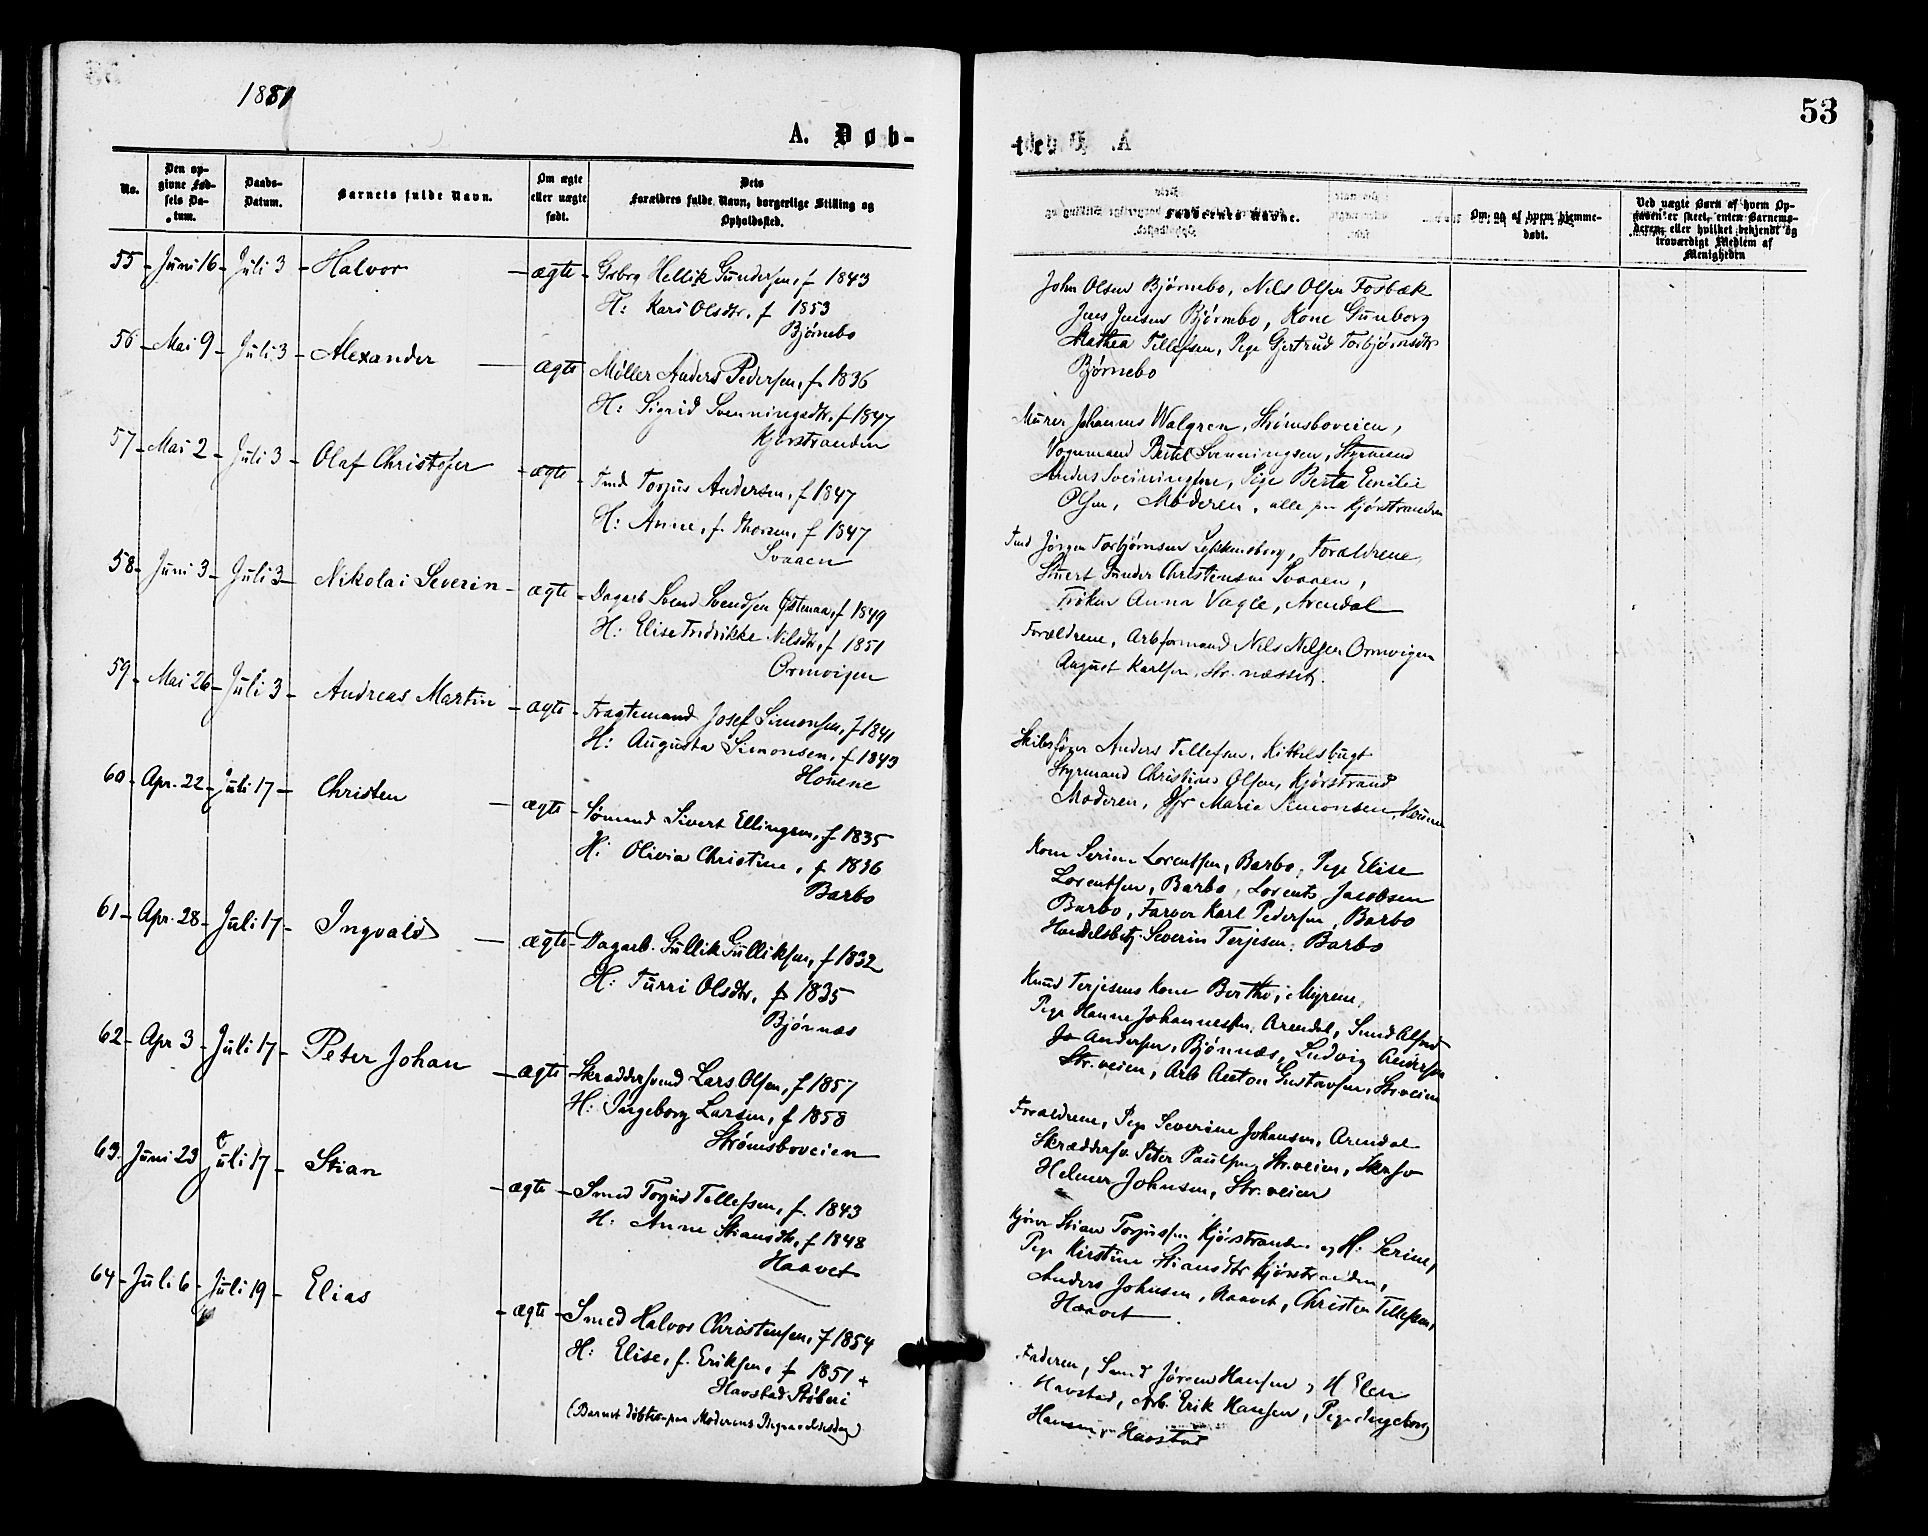 1881
53
A. Døb-
No.
Den op-
givne Fød-
sels Da-
tum.
Daabs-
Datum.
Barnets fulde Navn.
Om ægte
eller uægte
født.
Dets
Forældres fulde Navn, borgerlige Stilling og
Opholdssted.
Faddernes Navne.
Om og af hvem hjemme-
døbt.
Ved uægte Børn af hvem Op-
gaven er skeet, enten Barnemo-
deren, eller hvilket bekjendt og
troværdigt Medlem af
Menigheden
55 - Juni 16 - Juli 3 - Halvor - ægte - Grbrg Hellik Gundersen, f 1843
H: Kari Olsdtr. f 1853
Bjørnebo
John Olsen Bjørnebo, Nils Olsen Fosbæk
Jens Jensen Bjørnebo, Kone Gunborg
Mathea Tellefsen, Pige Gjertrud Torbjørnsdtr
Bjørnebo
56 - Mai 9 - Juli 3 - Alexander - ægte Møller Anders Pedersen, f. 1836
H: Sigrid Svenningsdtr. f 1847
Kjørstranden
Murer Johannes Walgren, Strømsboveien,
Vognmand Bertel Svenningsen, Styrmand
Anders Svenningsen, Pige Berta Emilie
Olsen, Moderen, alle paa Kjørstranden
57 - Mai 2 - Juli 3 - Olaf Christofer - ægte - Tmd Torjus Andersen, f 1847
H: Anne, f. Thorsen, f 1847
Svaaen
Tmd Jørgen Torbjørnsen, Forældrene,
Gunder Christensen Svaaen,
Frøken Anna Vagle, Arendal
58 - Juni 3 - Juli 3 - Nikolai Severin - ægte - Dagarb Svend Svendsen, f 1849
H: Elise Fredrikke Nilsdtr, f 1851
Ormvigen
Forældrene, Arbformand Nils Nilsen Ormvigen
August Karlsen, Str. næsset.
59 - Mai 26 - Juli 3 - Andreas Martin - ægte - Fragtemand Josef Simonsen, f 1841
H: Augusta Simonsen, f 1843
Houene
Skibsfører Anders Tellefsen, Kittelsbugt
Styrmand Christian Olsen, Kjørstrand
Moderen, Jfr Marie Simonsen, Houene
60 - Apr. 22 - Juli 17 - Christen - ægte - Sømand Sivert Ellingsen, f 1835
H: Olivia Christine, f 1836
Barbo
Kone Serine Lorentsen, Barbo, Pige Elise
Lorentsen, Barbo, Lorents Jacobsen
Barbo, Farver Karl Pedersen, Barbo
Handelsbetj. Severin Terjesen, Barbo
61 - Apr. 28 - Juli 17 - Ingvald - ægte - Dagarb. Gullik Gulliksen, f 1832
H: Turri Olsdtr, f 1835
Bjørnæs
Knud Terjesens Kone Berthe, Myrene,
Pige Hanne Johannessen, Arendal, Smed Alfred
Jo Andersen, Bjønnæs, Ludvig Andersen
Str. veien, Arb Anton Gustavsen, Str veien
62 - Apr 3 - Juli 17 - Peter Johan - ægte - Skræddersvend Lars Olsen, f 1857
H: Ingeborg Larsen, f 1858
Strømsboveien
Forældrene, Pige Severine Johansen, Arendal
Skræddersv. Peter Paulsen, Str. veien, Skrsv
Helmer Johnsen, Str. veien
63. Juni 23 Juli 17 - Stian - ægte - Smed Torjus Tellefsen, f. 1843
H: Anne Stiansdtr, f 1848
Haavet
Stian Torjussen Kjørstranden og H: Serine,
Pige Kirstine Stiansdtr Kjørstranden,
Anders Johnsen, Haavet, Christen Tellefsen,
Haavet
64 - Juli 6 - Juli 19 - Elias - ægte - Smed Halvor Christensen, f 1854
H: Elise, f. Eriksen, f 1851 +
Havstad Støberi
(Barnet døbtes paa Moderens Begravelsesdag)
Faderen, Smed Jørgen Hansen og H Elen
Havstad, Arb. Erik Hansen, Pige Ingeborg
Hansen, Havstad